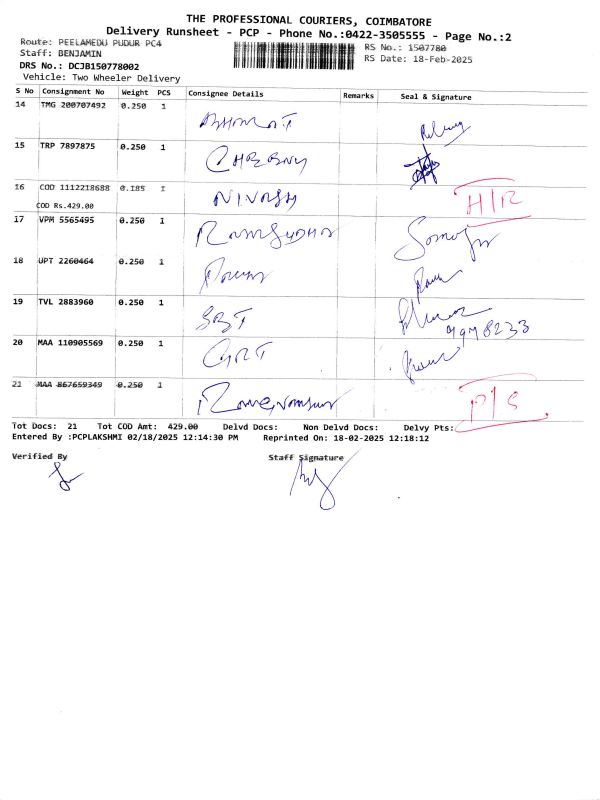 THE PROFESSIONAL COURIERS, COIMBATORE
Delivery Runsheet - PCP - Phone No.:0422-3505555 - Page No.:2
Route: PEELAMEDU PUDUR PC4
RS No.: 1507780
Staff: BENJAMIN
RS Date: 18-Feb-2025
DRS No.: DCJB150778002
Vehicle: Two Wheeler Delivery
S No Consignment No Weight PCS Consignee Details Remarks Seal & Signature
14 TMG 200707492 0.250 1
15 TRP 7897875 0.250 1
16 COD 1112218688 0.185 1 NIVASH H/R
COD Rs.429.00
17 VPM 5565495 0.250 1
18 UPT 2260464 0.250 1
19 TVL 2883960 0.250 1 SBT
20 MAA 110905569 0.250 1 GRT
21 MAA 867659349 0.250 1 P/S
Tot Docs: 21 Tot COD Amt: 429.00 Delvd Docs: Non Delvd Docs: Delvy Pts:
Entered By :PCPLAKSHMI 02/18/2025 12:14:30 PM Reprinted On: 18-02-2025 12:18:12
Verified By Staff Signature